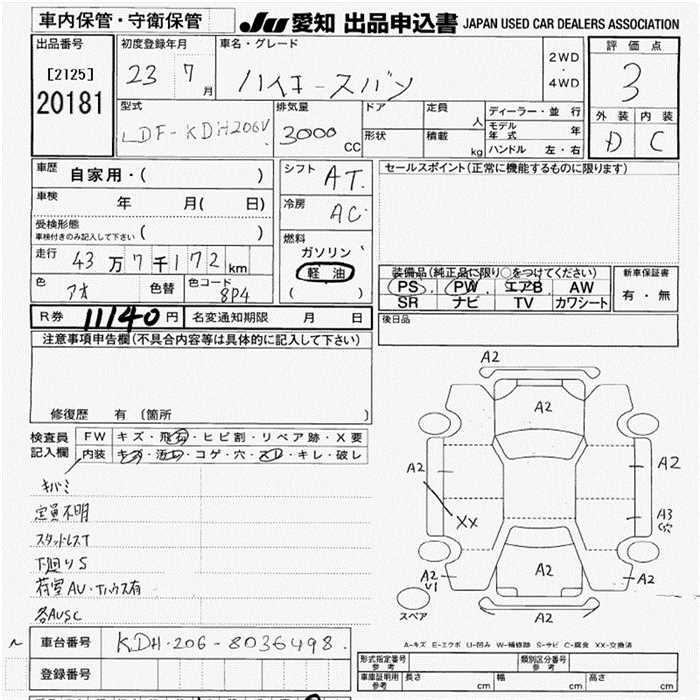 車内保管・守衛保管
JU 愛知 出品申込書 JAPAN USED CAR DEALERS ASSOCIATION
出品番号
[2125]
20181
初度登録年月
23 7月
車名・グレード
ハイエースバン
2WD・4WD
評価点
3
外装 内装
D C
型式
LDF-KDH206V
排気量
3000 CC
ドア
定員 人
形状
積載 kg
ディーラー・並行
モデル年式 年
ハンドル 左・右
車歴 自家用・( )
車検 年 月( 日)
受検形態
車検付きのみ記入して下さい ( )
走行 43万7千172km
色 アオ 色替 色コード 8P4
シフト AT
冷房 AC
燃料
ガソリン
軽油
( )
セールスポイント(正常に機能するものに限ります)
装備品(純正品に限り○をつけてください)
PS PW エアB AW
SR ナビ TV カワシート
新車保証書
有・無
後日品
R券 11140円 名変通知期限 月 日
注意事項申告欄(不具合内容等は具体的に記入して下さい)
修復歴 有 (箇所 )
検査員記入欄
FW キズ・飛石・ヒビ割・リペア跡・X要
内装 キズ・汚れ・コゲ・穴・スレ・キレ・破レ
キバミ
定員不明
スタッドレスT
下廻りS
荷室AU・Tハウス有
各AUSC
A2
A2
A2
A2
XX
A3
穴
A2
U1
A2
A2
A2
スペア
A-キズ E-エクボ U-凹み W-補修跡 S-サビ C-腐食 XX-交換済
車台番号 KDH-206-8036498
登録番号
形式指定番号 参考
類別区分番号 参考
車庫証明用 参考 長さ cm 幅 cm 高さ cm